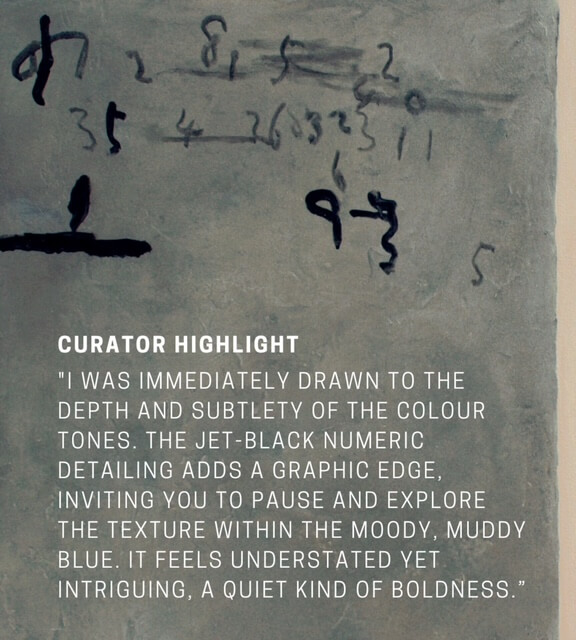 2 8, 5 2
35 4 3 11
6
9-3
5
CURATOR HIGHLIGHT
"I WAS IMMEDIATELY DRAWN TO THE
DEPTH AND SUBTLETY OF THE COLOUR
TONES. THE JET-BLACK NUMERIC
DETAILING ADDS A GRAPHIC EDGE,
INVITING YOU TO PAUSE AND EXPLORE
THE TEXTURE WITHIN THE MOODY, MUDDY
BLUE. IT FEELS UNDERSTATED YET
INTRIGUING, A QUIET KIND OF BOLDNESS.”